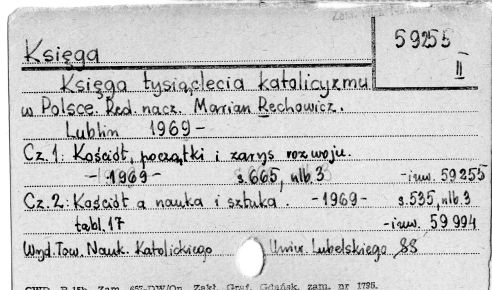 Księga
59255
II
Księga tysiąclecia katolicyzmu
w Polsce. Red. nacz. Marian Rechowicz.
Lublin 1969-
Cz. 1: Kościół, początki i zarys rozwoju.
-1969- s. 665, nlb. 3 -inw. 59255
Cz. 2: Kościół a nauka i sztuka. -1969- s. 535, nlb. 3
tabl. 17 -inw. 59994
Wyd. Tow. Nauk. Katolickiego Uniw. Lubelskiego
CWD. Zam. 657-DW/On. Zakł. Graf. Gdańsk, zam. nr 1795.